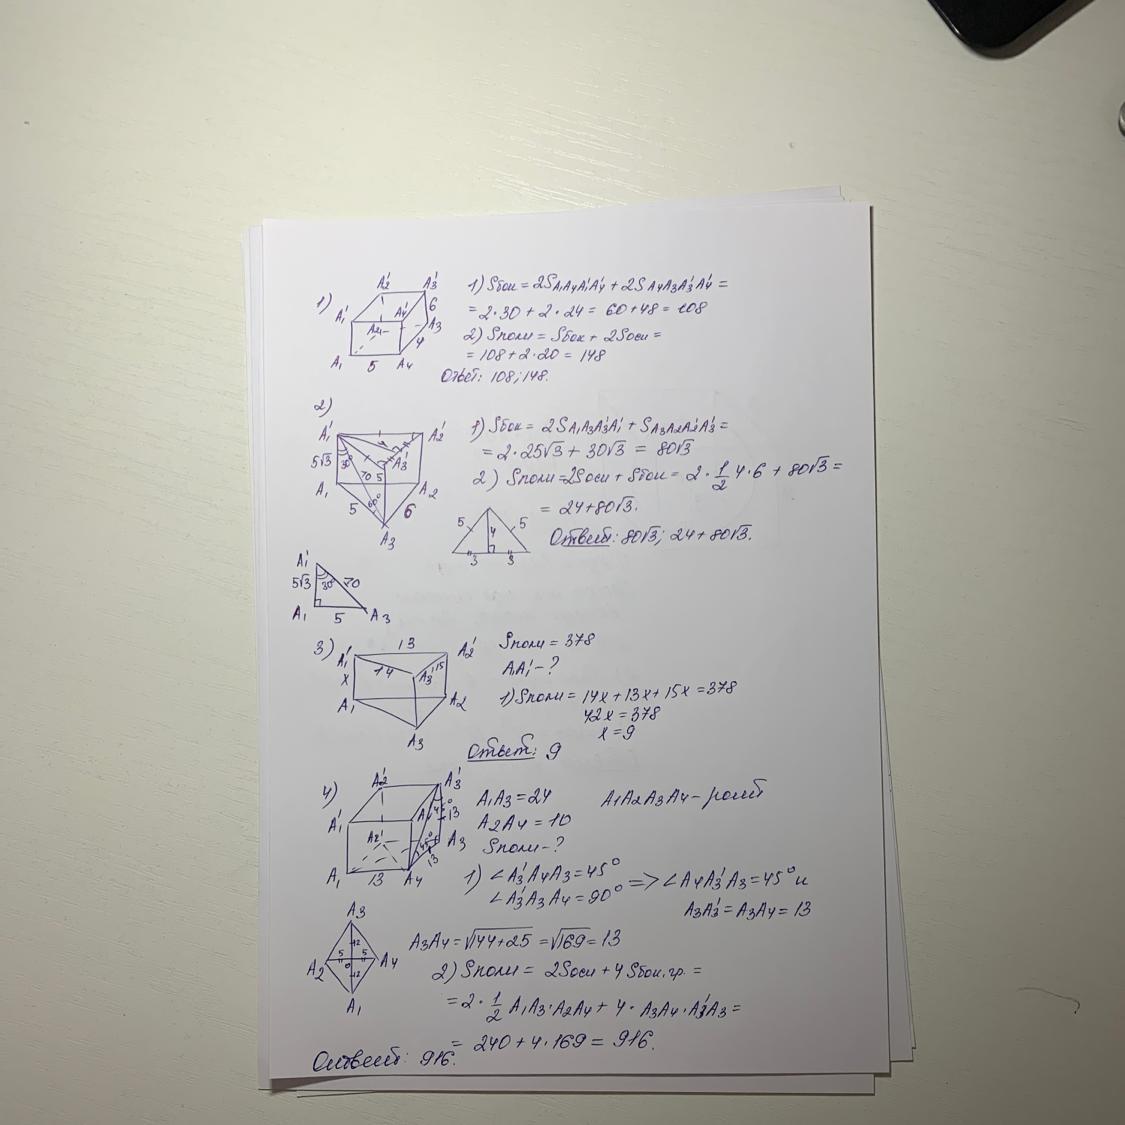 1)
A₁' A₂' A₃' A₄' 6
A₁ A₂ A₃ A₄ 5 4
1) Sбок = 2S A₁A₄A₁'A₄' + 2S A₄A₃A₃'A₄' =
= 2·30 + 2·24 = 60+48 = 108
2) Sполн = Sбок + 2Sосн =
= 108+2·20 = 148
Ответ: 108; 148.
2)
A₁' A₂' A₃'
5√3 30° 10 5
A₁ A₂ A₃ 5 60° 6
1) Sбок = 2S A₁A₃A₃'A₁' + S A₃A₂A₂'A₃' =
= 2·25√3 + 30√3 = 80√3
2) Sполн = 2Sосн + Sбок = 2·1/2 4·6 + 80√3 =
= 24+80√3.
Ответ: 80√3; 24+80√3.
5 4 5
3 3
A₁'
5√3 30° 10
A₁ 5 A₃
3)
13
A₁' A₂'
x 14 A₃' 15
A₁ A₂
A₃
Sполн = 378
A₁A₁' - ?
1) Sполн = 14x + 13x + 15x = 378
42x = 378
x = 9
Ответ: 9
4)
A₂' A₃'
A₁' A₄' 13
A₂' A₃
A₁ 13 A₄ 45° 13
A₁A₃ = 24 A₁A₂A₃A₄ - ромб
A₂A₄ = 10
Sполн - ?
1) ∠A₃'A₄A₃ = 45°
∠A₃'A₃A₄ = 90° => ∠A₄A₃'A₃ = 45° и
A₃A₃' = A₃A₄ = 13
A₃
12
A₂ 5 0 5 A₄
12
A₁
A₃A₄ = √144+25 = √169 = 13
2) Sполн = 2Sосн + 4Sбок.гр. =
= 2·1/2 A₁A₃·A₂A₄ + 4·A₃A₄·A₃'A₃ =
= 240 + 4·169 = 916.
Ответ: 916.